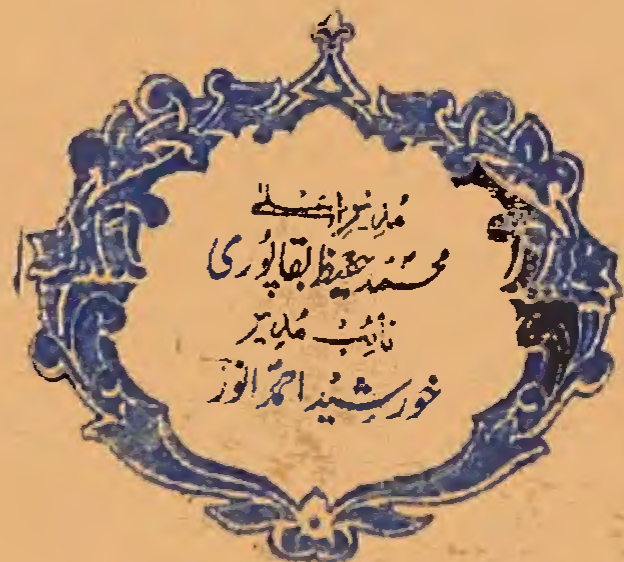 مُدیرِ اعلےٰ
محمد حفیظ بقاپُوری
نائب مُدیر
خورشید احمد انور